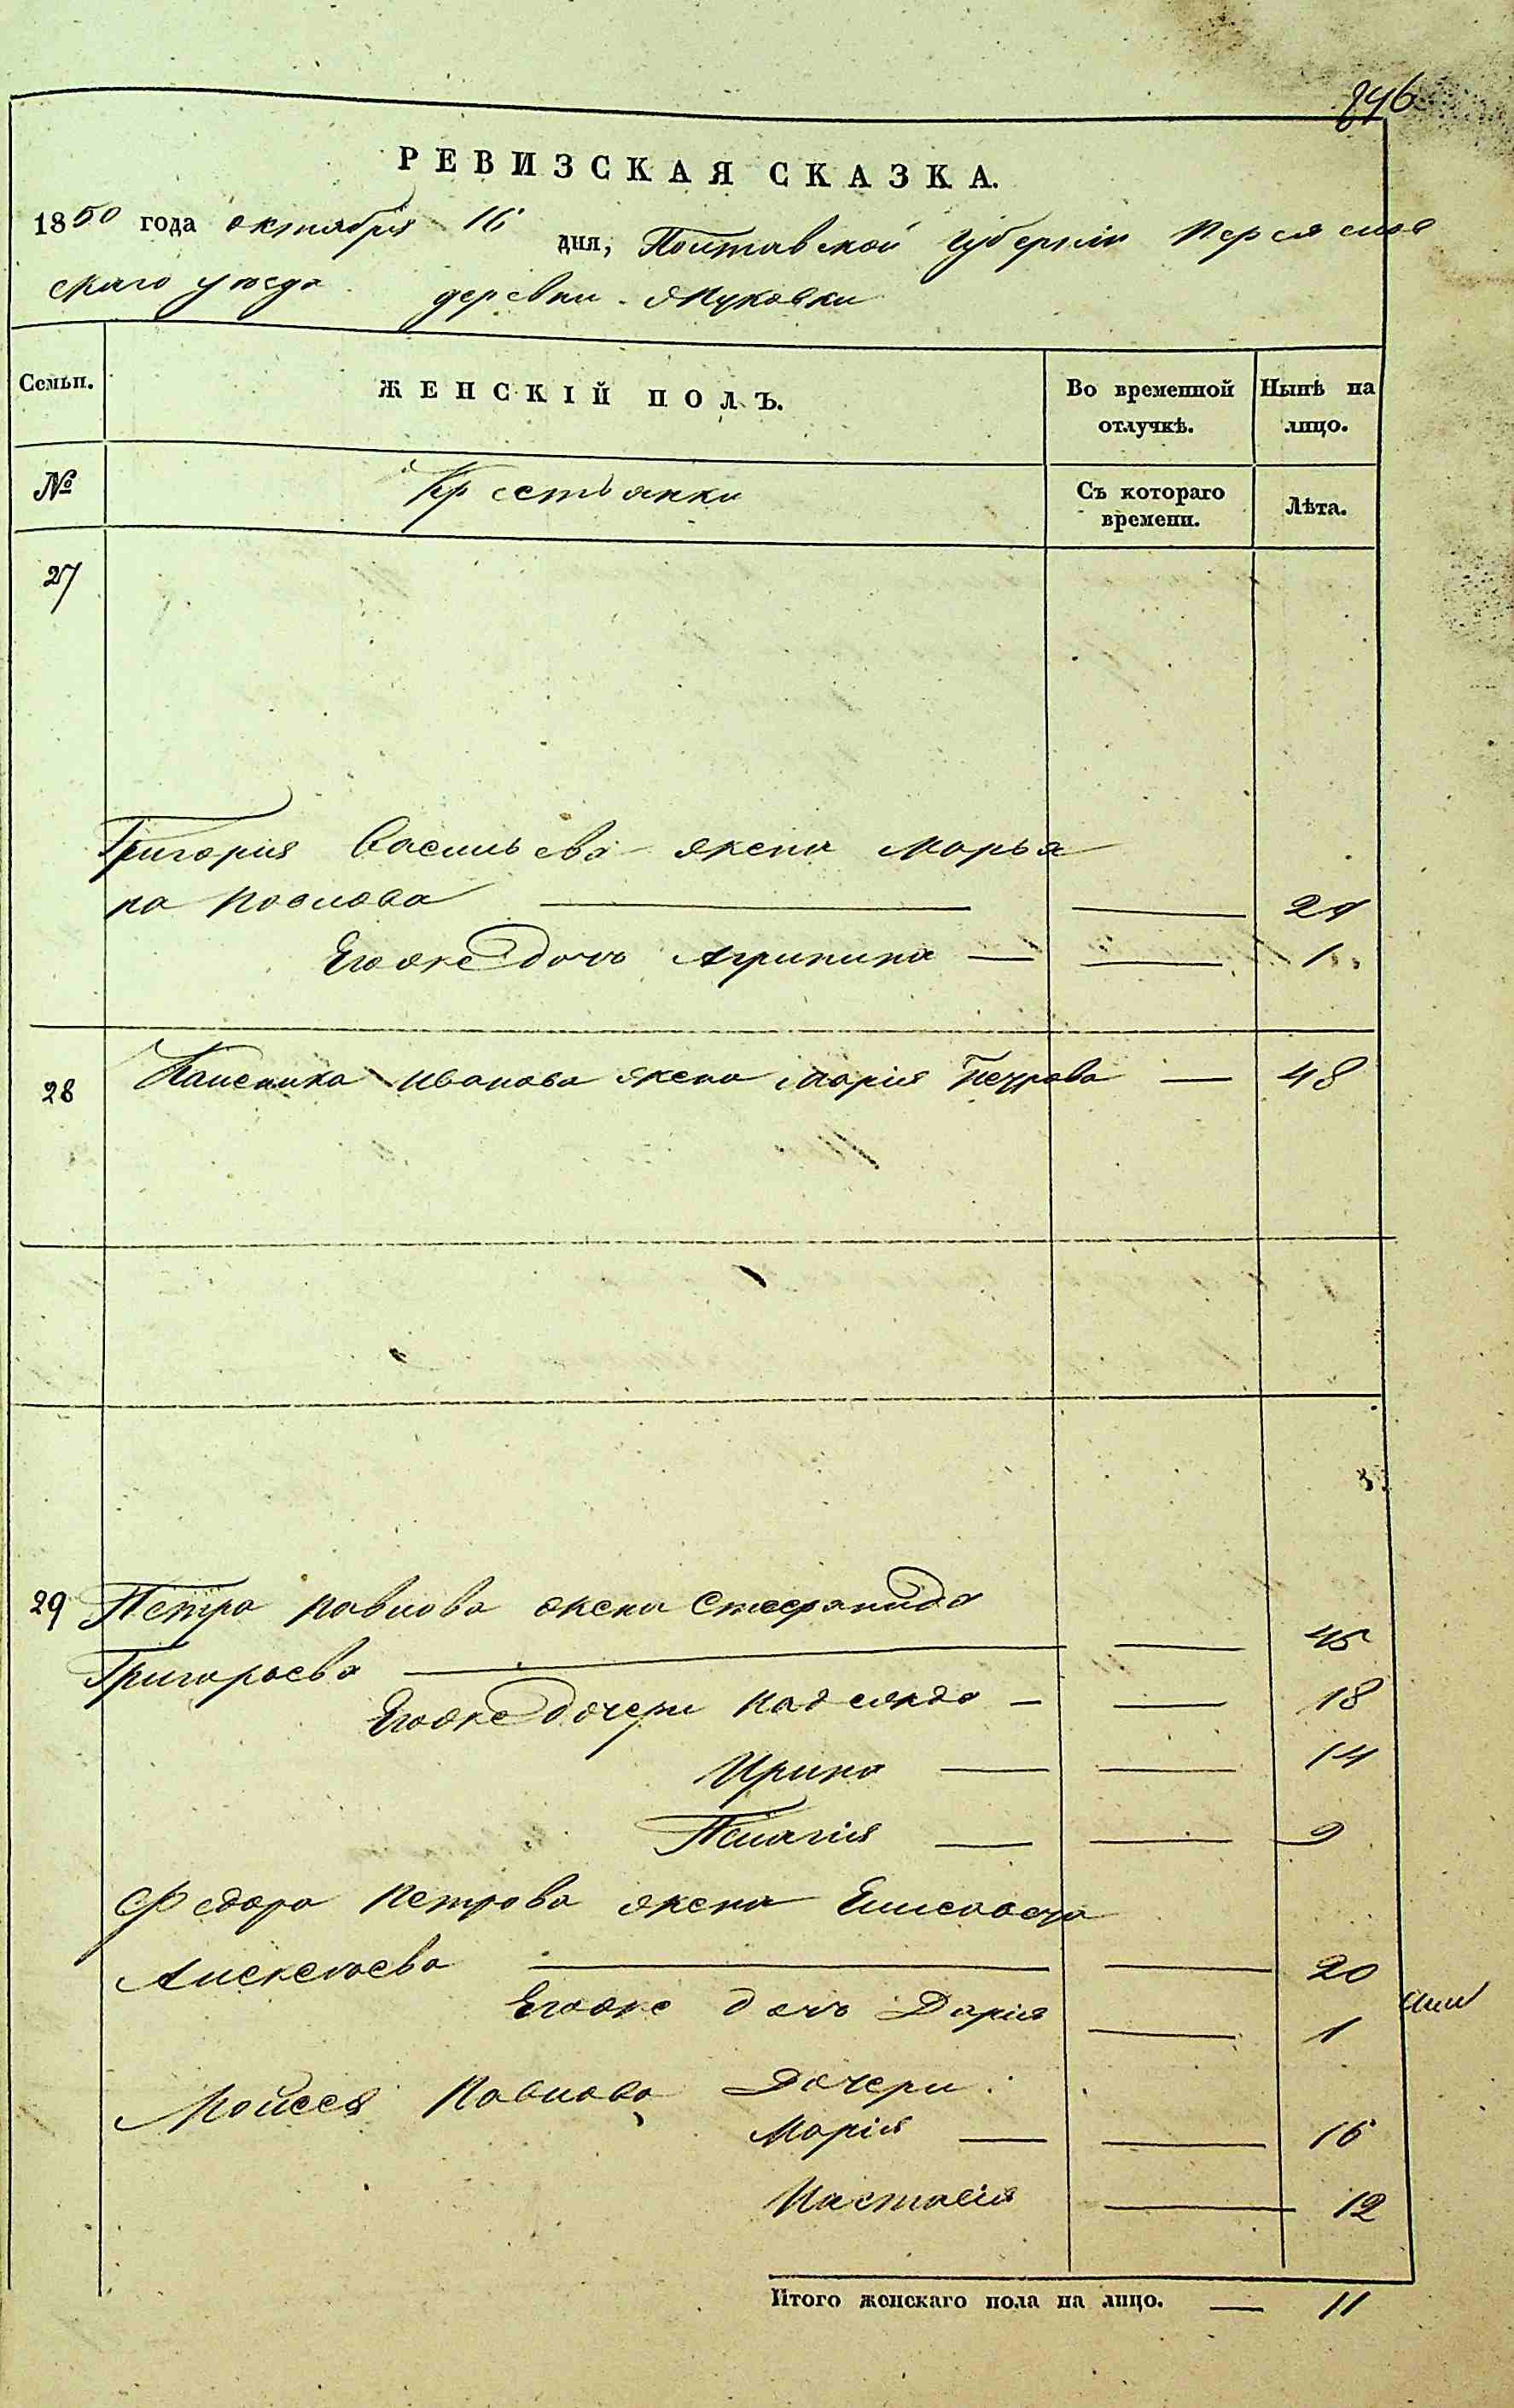 846
РЕВИЗСКАЯ СКАЗКА.
1850 года октября 16 дня, Полтавской губернии Переяслов
скаго уезда деревни Якуковки
Семьи. ЖЕНСКІЙ ПОЛЪ. Во временной отлучкѣ. Нынѣ на лицо.
№ Крестьянки Съ котораго времени. Лѣта.
27
Григорія Васильева жена Марья
на Павлова — — 24
Егоже дочь Агрипина — — 1
28 Каленика Иванова жена Марія Петрова — 48
29 Петра Павлова жена Стефанида
Григорьева — — 45
Егоже дочери Надежда — — 18
Ирина — — 14
Пелагія — — 9
Федора Петрова жена Елисавета
Алексеева — — 20
Егоже дочь Дарія — 1
Мойсея Павлова Дочери:
Марія — — 16
Настасія — 12
Итого женскаго пола на лицо. — 11